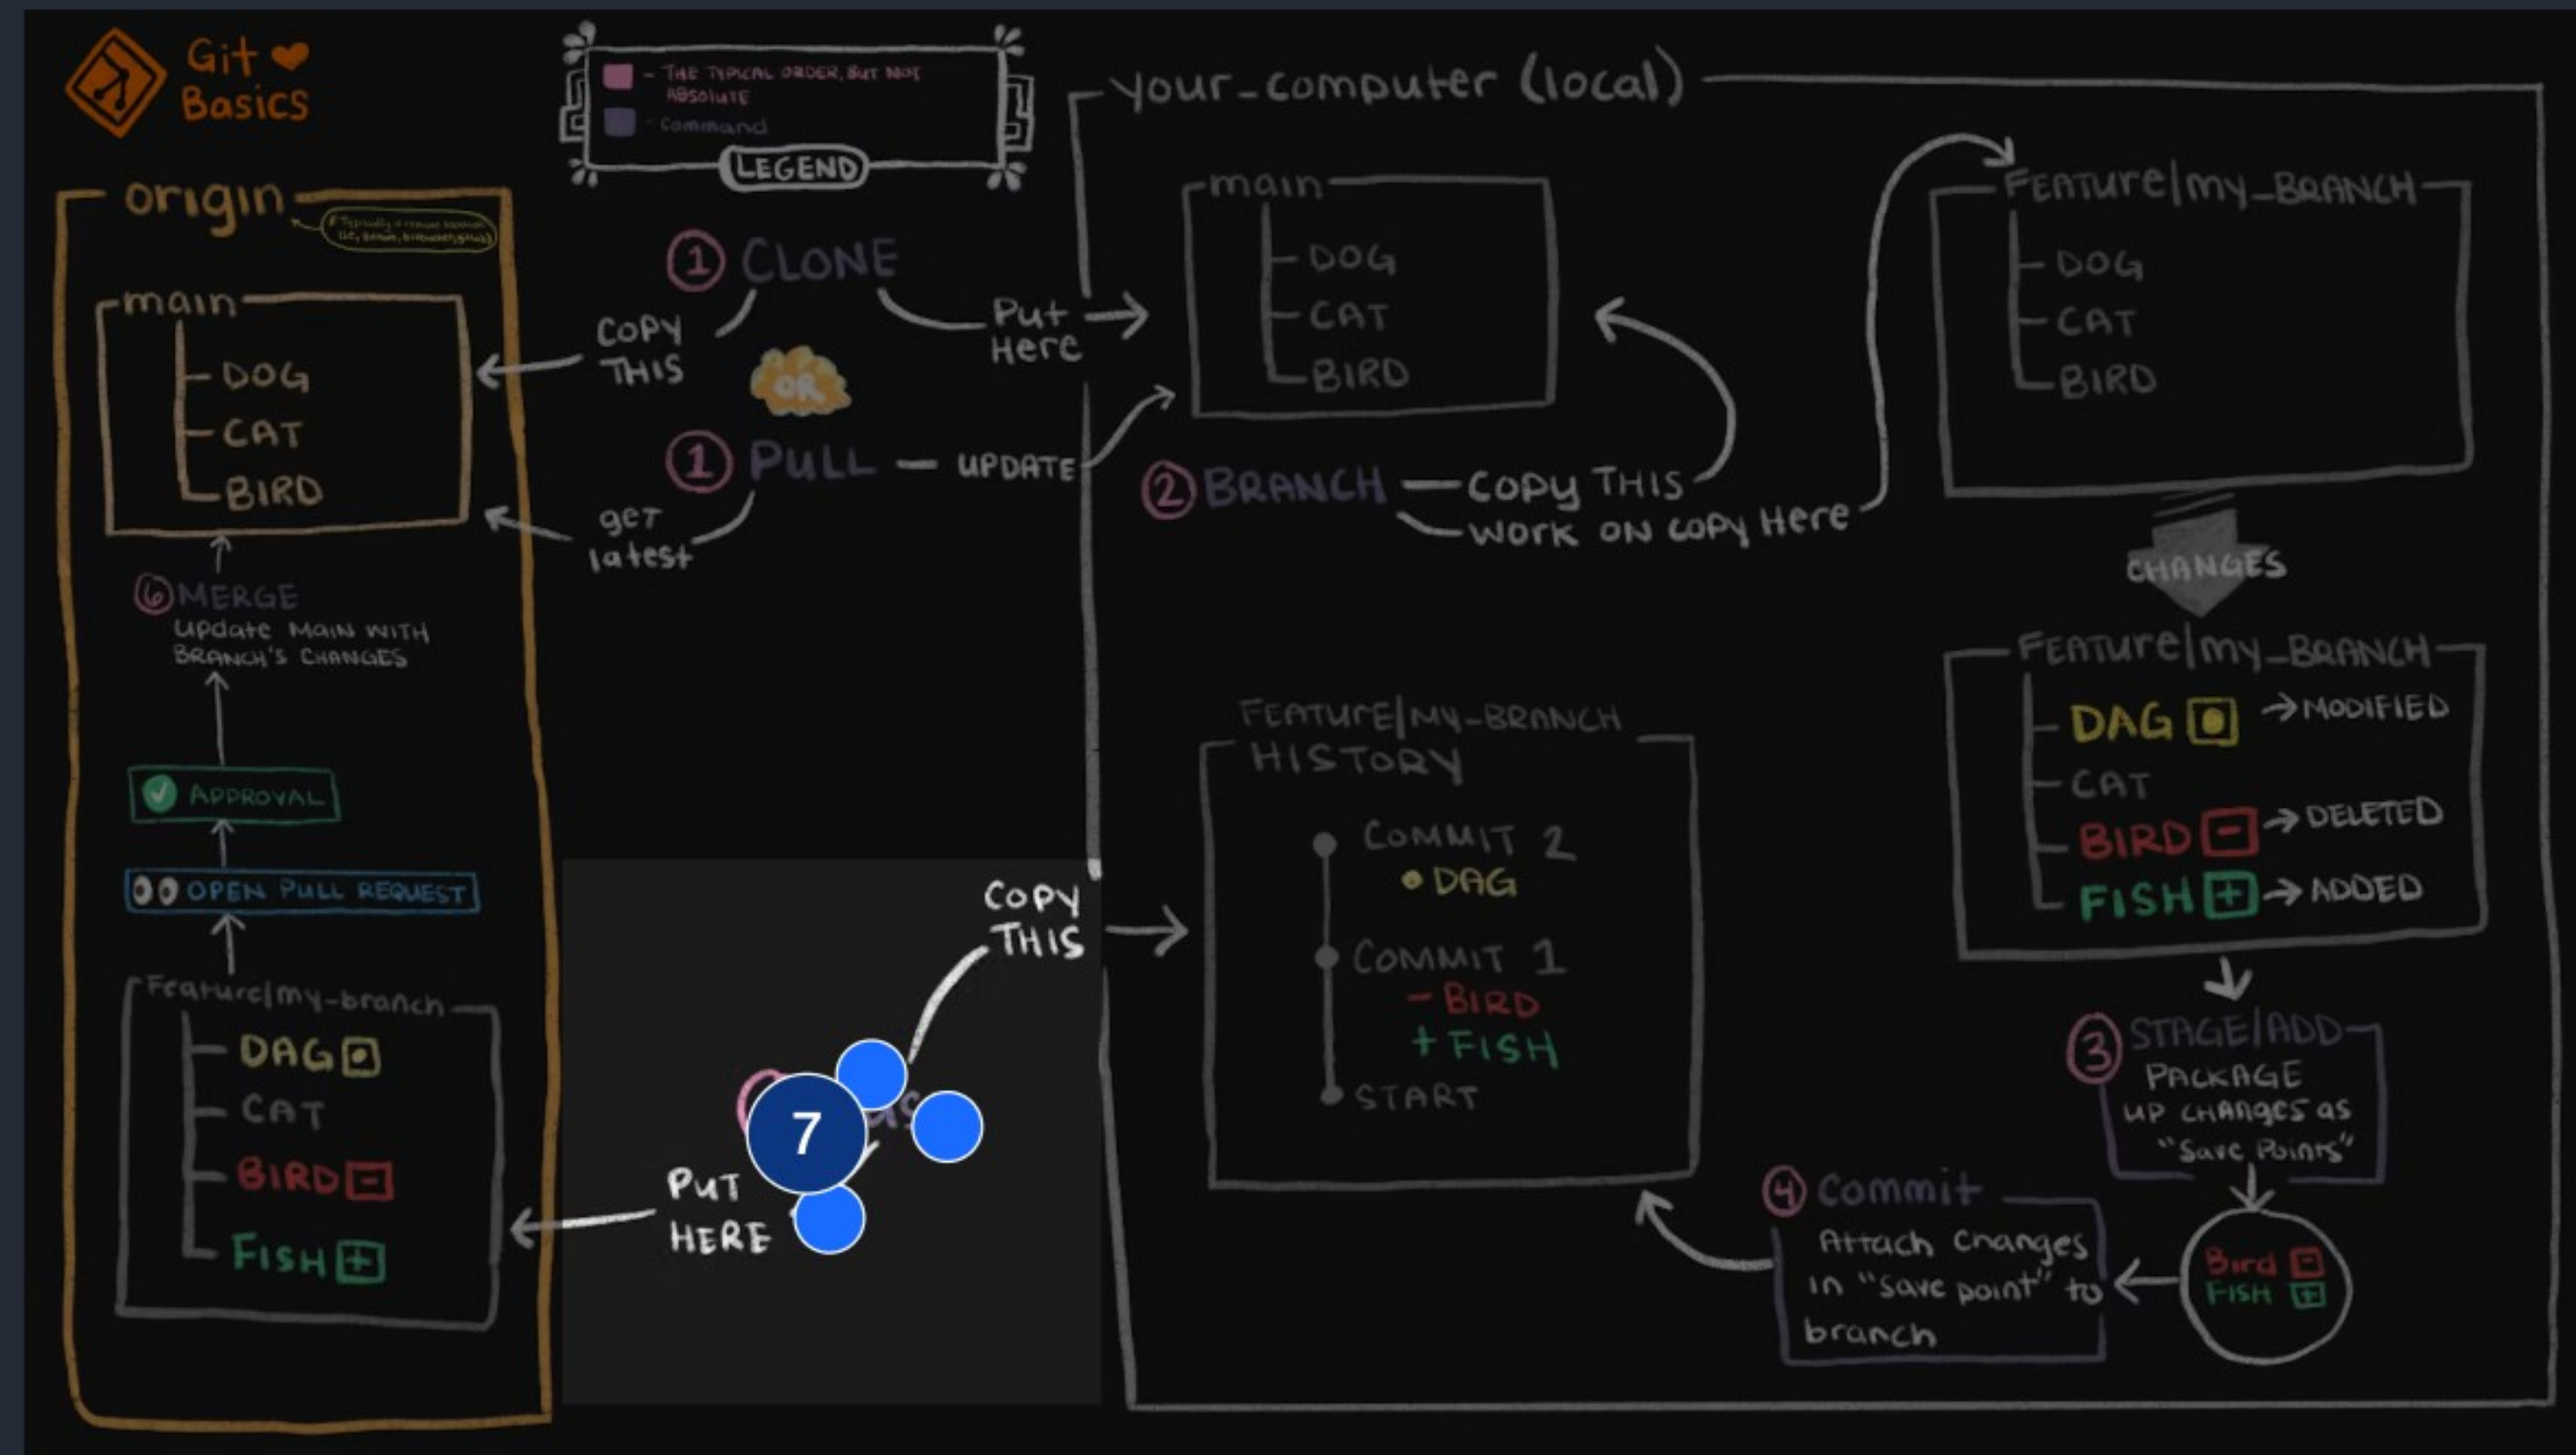 Git ❤
Basics
- THE TYPICAL ORDER, BUT NOT
ABSOLUTE
- Command
LEGEND
origin
main
DOG
CAT
BIRD
6 MERGE
Update MAIN WITH
BRANCH'S CHANGES
APPROVAL
OPEN PULL REQUEST
Feature/my-branch
DAG
CAT
BIRD -
FISH +
1 CLONE
COPY
THIS
Put
Here
OR
1 PULL — UPDATE
get
latest
COPY
THIS
7
PUT
HERE
your_computer (local)
main
DOG
CAT
BIRD
2 BRANCH — COPY THIS
WORK ON COPY Here
FEATURE/my_BRANCH
DOG
CAT
BIRD
CHANGES
FEATURE/my_BRANCH
DAG → MODIFIED
CAT
BIRD - → DELETED
FISH + → ADDED
3 STAGE/ADD
PACKAGE
UP CHANGES as
"Save Points"
Bird -
FISH +
4 Commit
Attach Changes
in "save point" to
branch
FEATURE/MY-BRANCH
HISTORY
COMMIT 2
• DAG
COMMIT 1
- BIRD
+ FISH
START